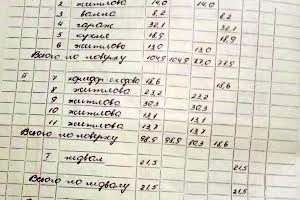 2 житлова 14,0 14,0
3 ванна 8,2 8,2
4 гараж 32,1 32,1
5 кухня 18,9 18,9
6 житлова 13,0 13,0
Всього по поверху 104,9 104,9 27,0 77,9
II 7 коридор-сходова 18,6 18,6
8 житлова 23,2 23,2
9 житлова 30,3 30,3
10 житлова 13,1 13,1
11 житлова 13,7 13,7
Всього по поверху 98,9 98,9 80,3 18,6
I підвал 21,5 21,5
Всього по підвалу 21,5 21,5